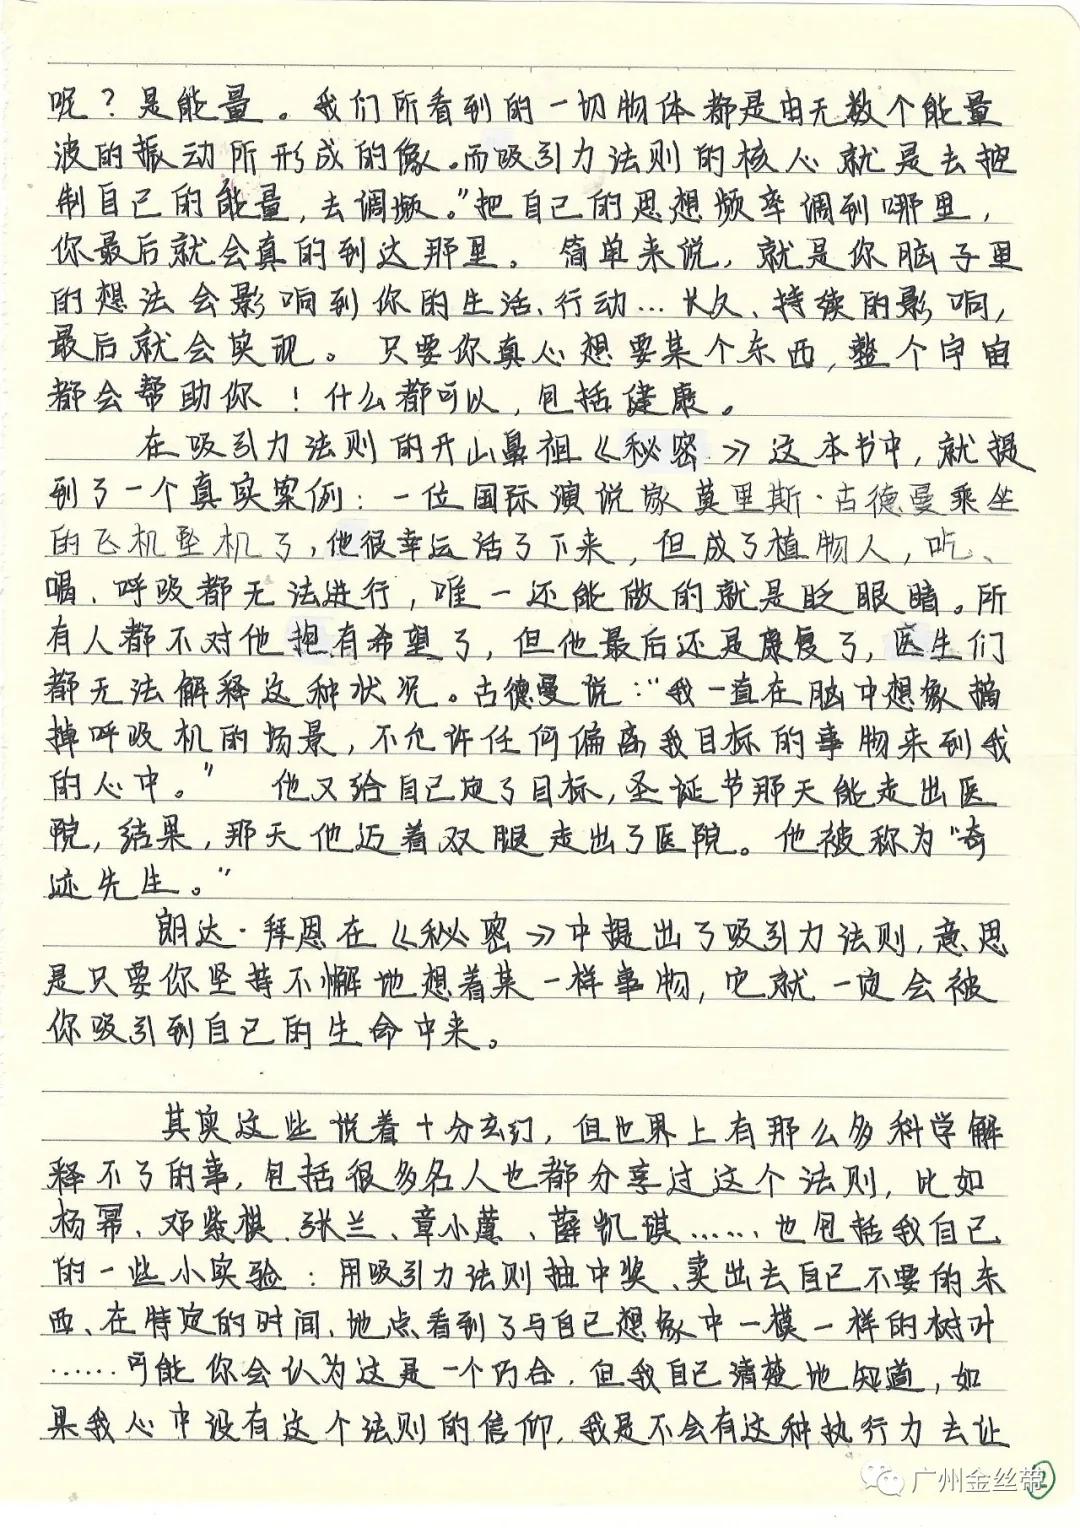 呢？是能量。我们所看到的一切物体都是由无数个能量
波的振动所形成的像。而吸引力法则的核心就是去控
制自己的能量，去调频。”把自己的思想频率调到哪里，
你最后就会真的到达那里。简单来说，就是你脑子里
的想法会影响到你的生活、行动…长久、持续的影响，
最后就会实现。只要你真心想要某个东西，整个宇宙
都会帮助你！什么都可以，包括健康。
在吸引力法则的开山鼻祖《秘密》这本书中，就提
到了一个真实案例：一位国际演说家莫里斯·古德曼乘坐
的飞机坠机了，他很幸运活了下来，但成了植物人，吃、
喝、呼吸都无法进行，唯一还能做的就是眨眼睛。所
有人都不对他抱有希望了，但他最后还是康复了，医生们
都无法解释这种状况。古德曼说：“我一直在脑中想象摘
掉呼吸机的场景，不允许任何偏离我目标的事物来到我
的心中。” 他又给自己定了目标，圣诞节那天能走出医
院，结果，那天他迈着双腿走出了医院。他被称为“奇
迹先生。”
朗达·拜恩在《秘密》中提出了吸引力法则，意思
是只要你坚持不懈地想着某一样事物，它就一定会被
你吸引到自己的生命中来。
其实这些说着十分玄幻，但世界上有那么多科学解
释不了的事，包括很多名人也都分享过这个法则，比如
杨幂、邓紫棋、张兰、章小蕙、薛凯琪……也包括我自己
的一些小实验：用吸引力法则抽中奖、卖出去自己不要的东
西、在特定的时间、地点看到了与自己想象中一模一样的树叶
……可能你会认为这是一个巧合，但我自己清楚地知道，如
果我心中没有这个法则的信仰，我是不会有这种执行力去让
广州金丝带
2